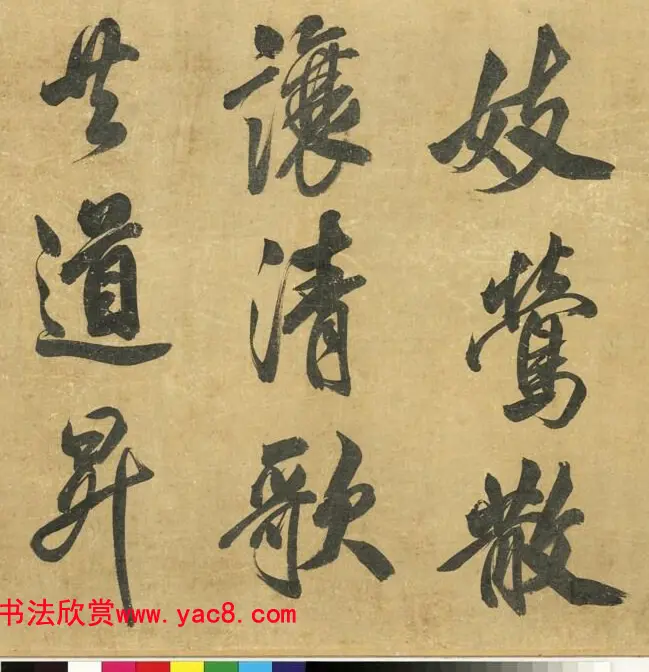 妓鶯散
讓清歌
共道昇
书法欣赏www.yac8.com